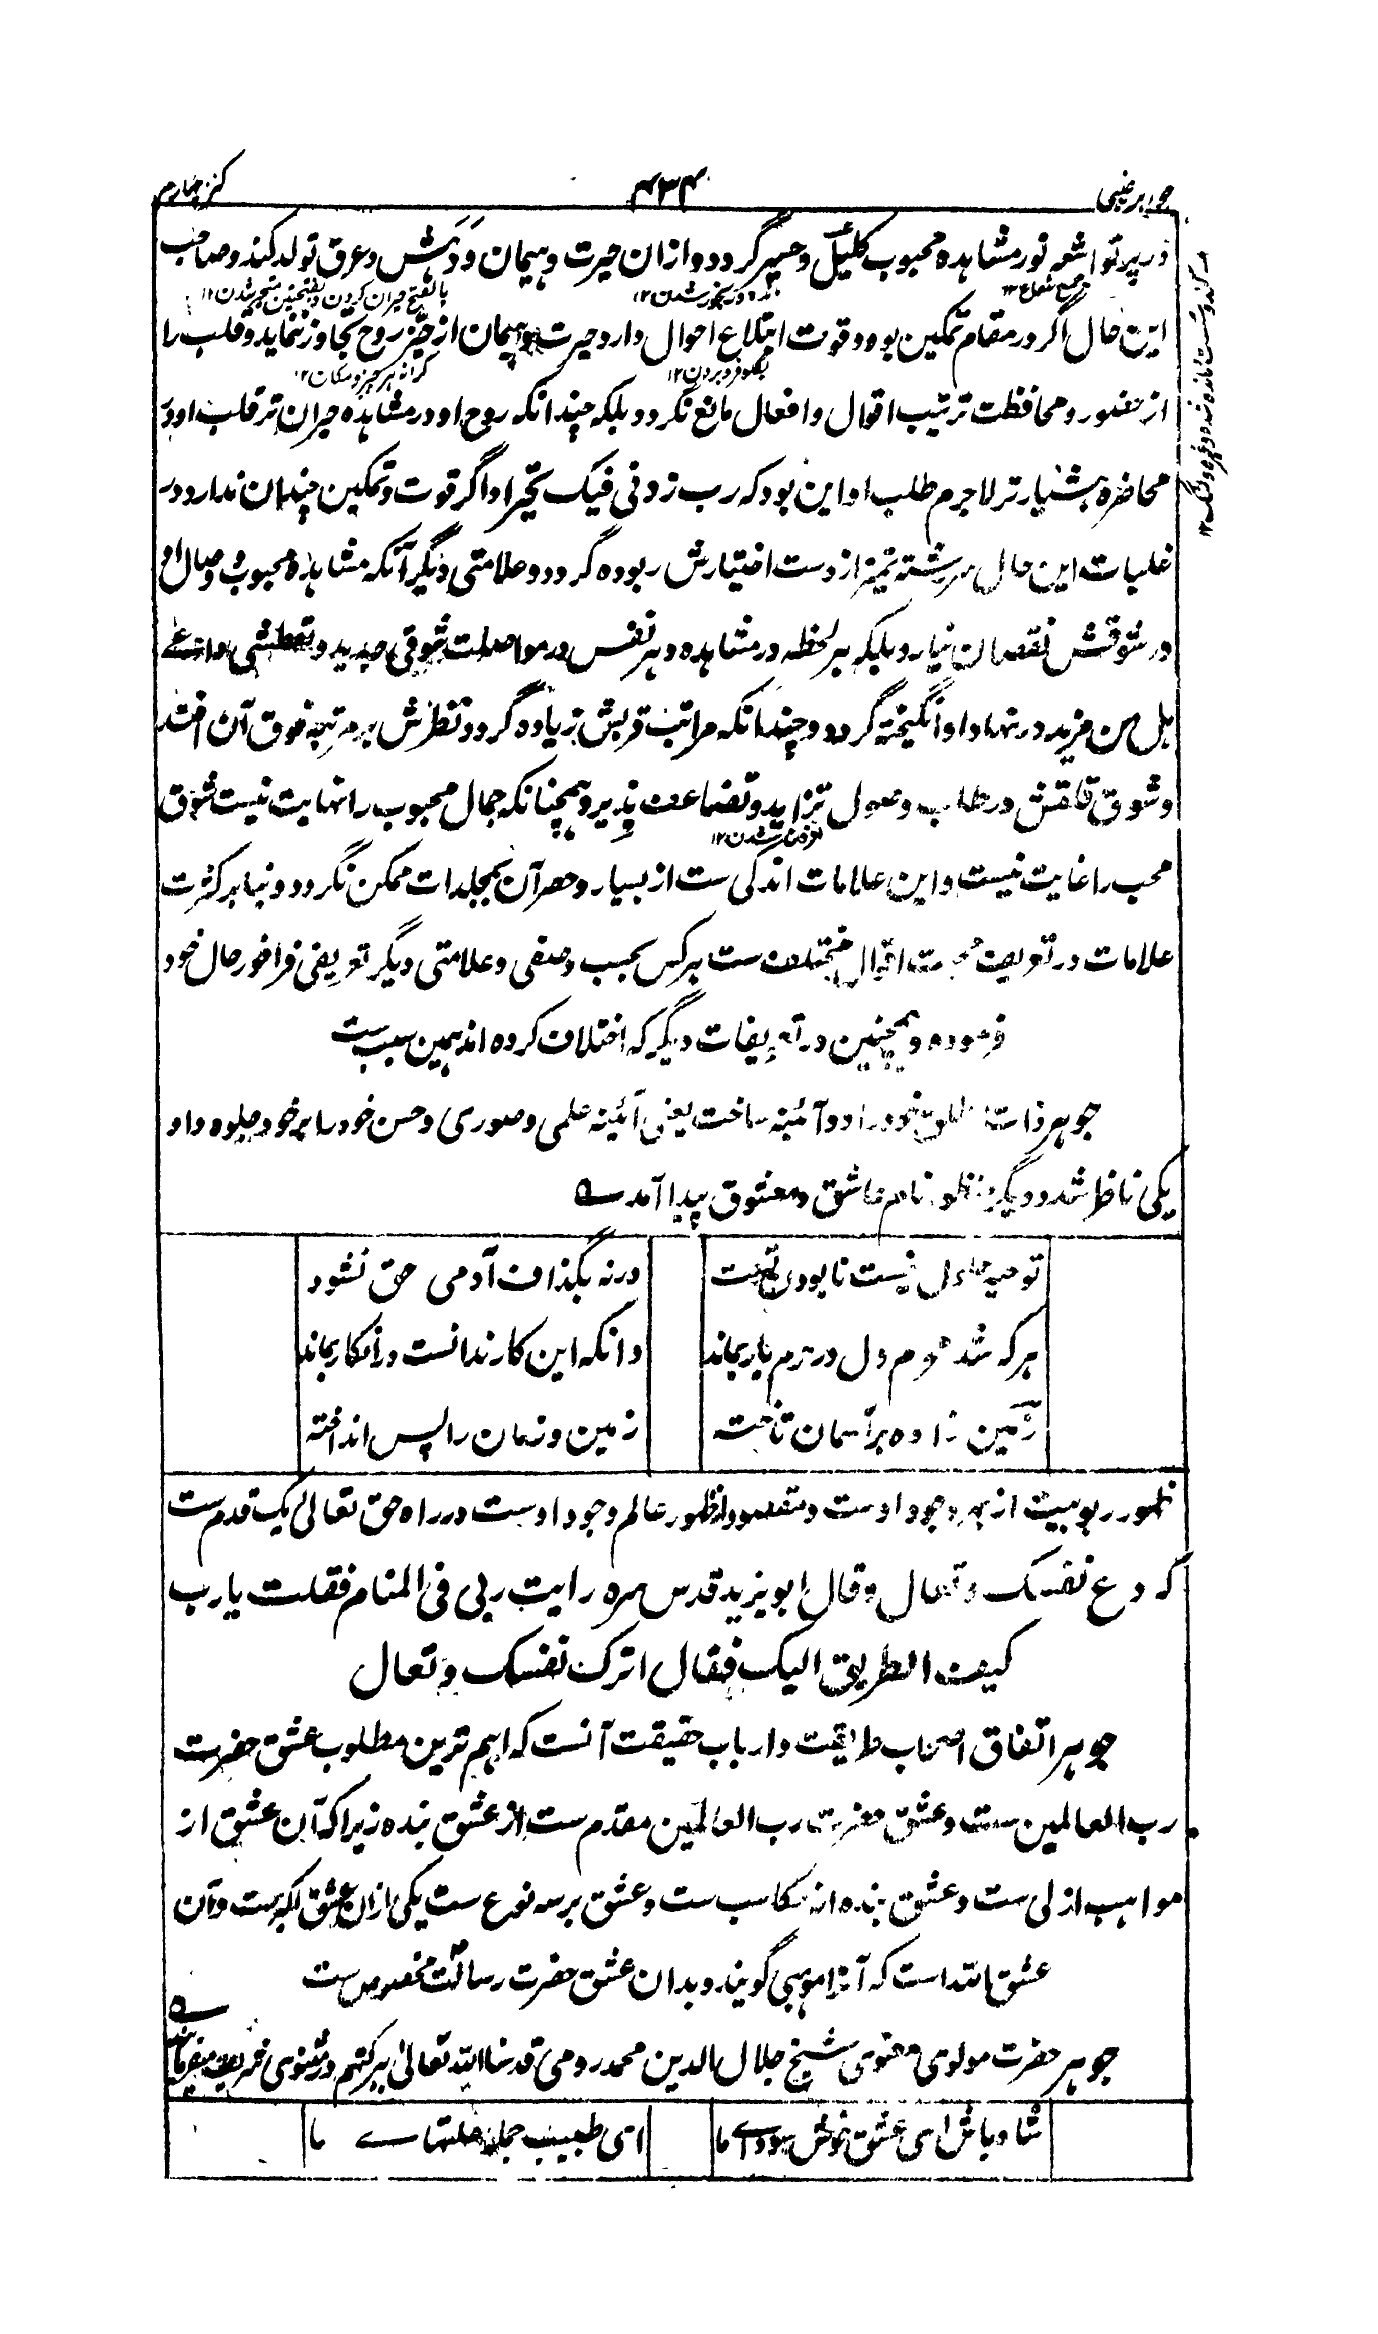 جواہر غیبی
۴۳۴
کنز چہارم
در پرتو اشعہ نور مشاہدہ محبوب کلیل و حسیر گردد و ازان حیرت و ہیمان و دَہَش و عرق تولد کند و صاحب
جمع شعاع ۱۲
این حال اگر در مقام تمکین بود و قوت ابتلاع احوال دارد حیرت و ہیمان از حیّز روح تجاوز ننماید و قلب را
بگلو فرو بردن ۱۲
کرانہ ہر چیز و مکان ۱۲
از حضور و محافظت ترتیب اقوال و افعال مانع نگردد بلکہ چندانکہ روح او در مشاہدہ حیران تر قلب او در
محاضرہ ہشیار تر لاجرم طلب او این بود کہ رب زدنی فیک تحیرا و اگر قوت و تمکین چندان ندارد در
غلبات این حال سر رشتہ تمیز از دست اختیارش ربودہ گردد و علامتی دیگر آنکہ مشاہدہ محبوب و وصال او
در شوقش نقصان نیارد بلکہ ہر لحظہ در مشاہدہ و ہر نفس در مواصلت شوقی جدید و تعطشی
ہل من مزید در نہاد او انگیختہ گردد و چندانکہ مراتب قربش زیادہ گردد نظرش بر مرتبہ فوق آن افتد
و شوق قلقش در طلب وصول تزاید و تضاعف پذیرد و ہمچنانکہ جمال محبوب را نہایت نیست شوق
محب را غایت نیست و این علامات اندکی ست از بسیار و حصر آن بمجلدات ممکن نگردد و بنا بر کثرت
علامات در تعریف محبت اقوال مختلف ست ہر کس بحسب وصفی و علامتی دیگر تعریفی فراخور حال خود
فرمودہ و ہمچنین در تعریفات دیگر کہ اختلاف کردہ اند ہمین سبب ست
جوہر ذات مطلق خود را دو آئینہ ساخت یعنی آئینہ علمی و صوری و حسن خود را بر خود جلوہ داد
یکی ناظر شد و دیگر منظور نام عاشق و معشوق پیدا آمد ؎
توحید حلول نیست نابودن تست
ورنہ بگذاف آدمی حق نشود
ہر کہ شد محرم دل در حرم یار بماند
وانکہ این کار ندانست در انکار بماند
زمین زادہ بر آسمان تاختہ
زمین و زمان را پس انداختہ
ظہور ربوبیت از بہر وجود اوست و مقصود از ظہور عالم وجود اوست در راہ حق تعالی یک قدم ست
کہ دع نفسک و تعال و قال ابو یزید قدس سرہ رایت ربی فی المنام فقلت یا رب
کیف الطریق الیک فقال اترک نفسک و تعال
جوہر اتفاق اصحاب طریقت و ارباب حقیقت آنست کہ اہم ترین مطلوب عشق حضرت
رب العالمین ست و عشق حضرت رب العالمین مقدم ست از عشق بندہ زیرا کہ آن عشق از
مواہب ازلی ست و عشق بندہ از مکاسب ست و عشق بر سہ نوع ست یکی ازان عشق اکبر ست و آن
عشق اللہ است کہ آنرا موہبی گویند و بدان عشق حضرت رسالت مخصوص ست
جوہر حضرت مولوی معنوی شیخ جلال الدین محمد رومی قدسنا اللہ تعالی ببرکتہم در مثنوی شریف میفرمایند ؎
شاد باش ای عشق خوش سودای ما
ای طبیب جملہ علتہاے ما